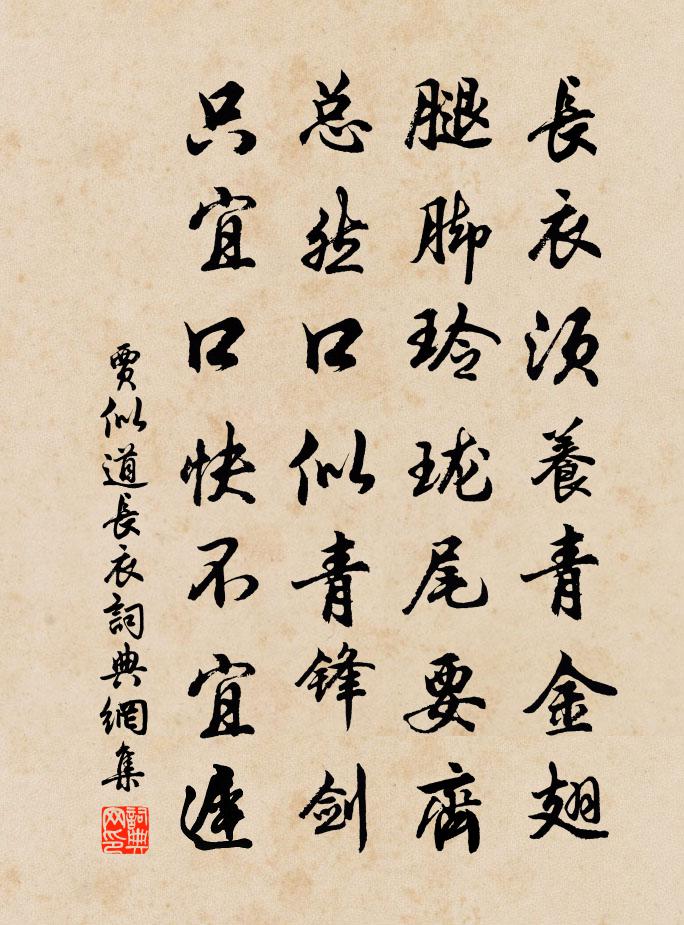 長衣须養青金翅
腿脚玲珑尾要齊
总然口似青锋剑
只宜口快不宜遲
賈似道長衣詞典網集
詞典网印